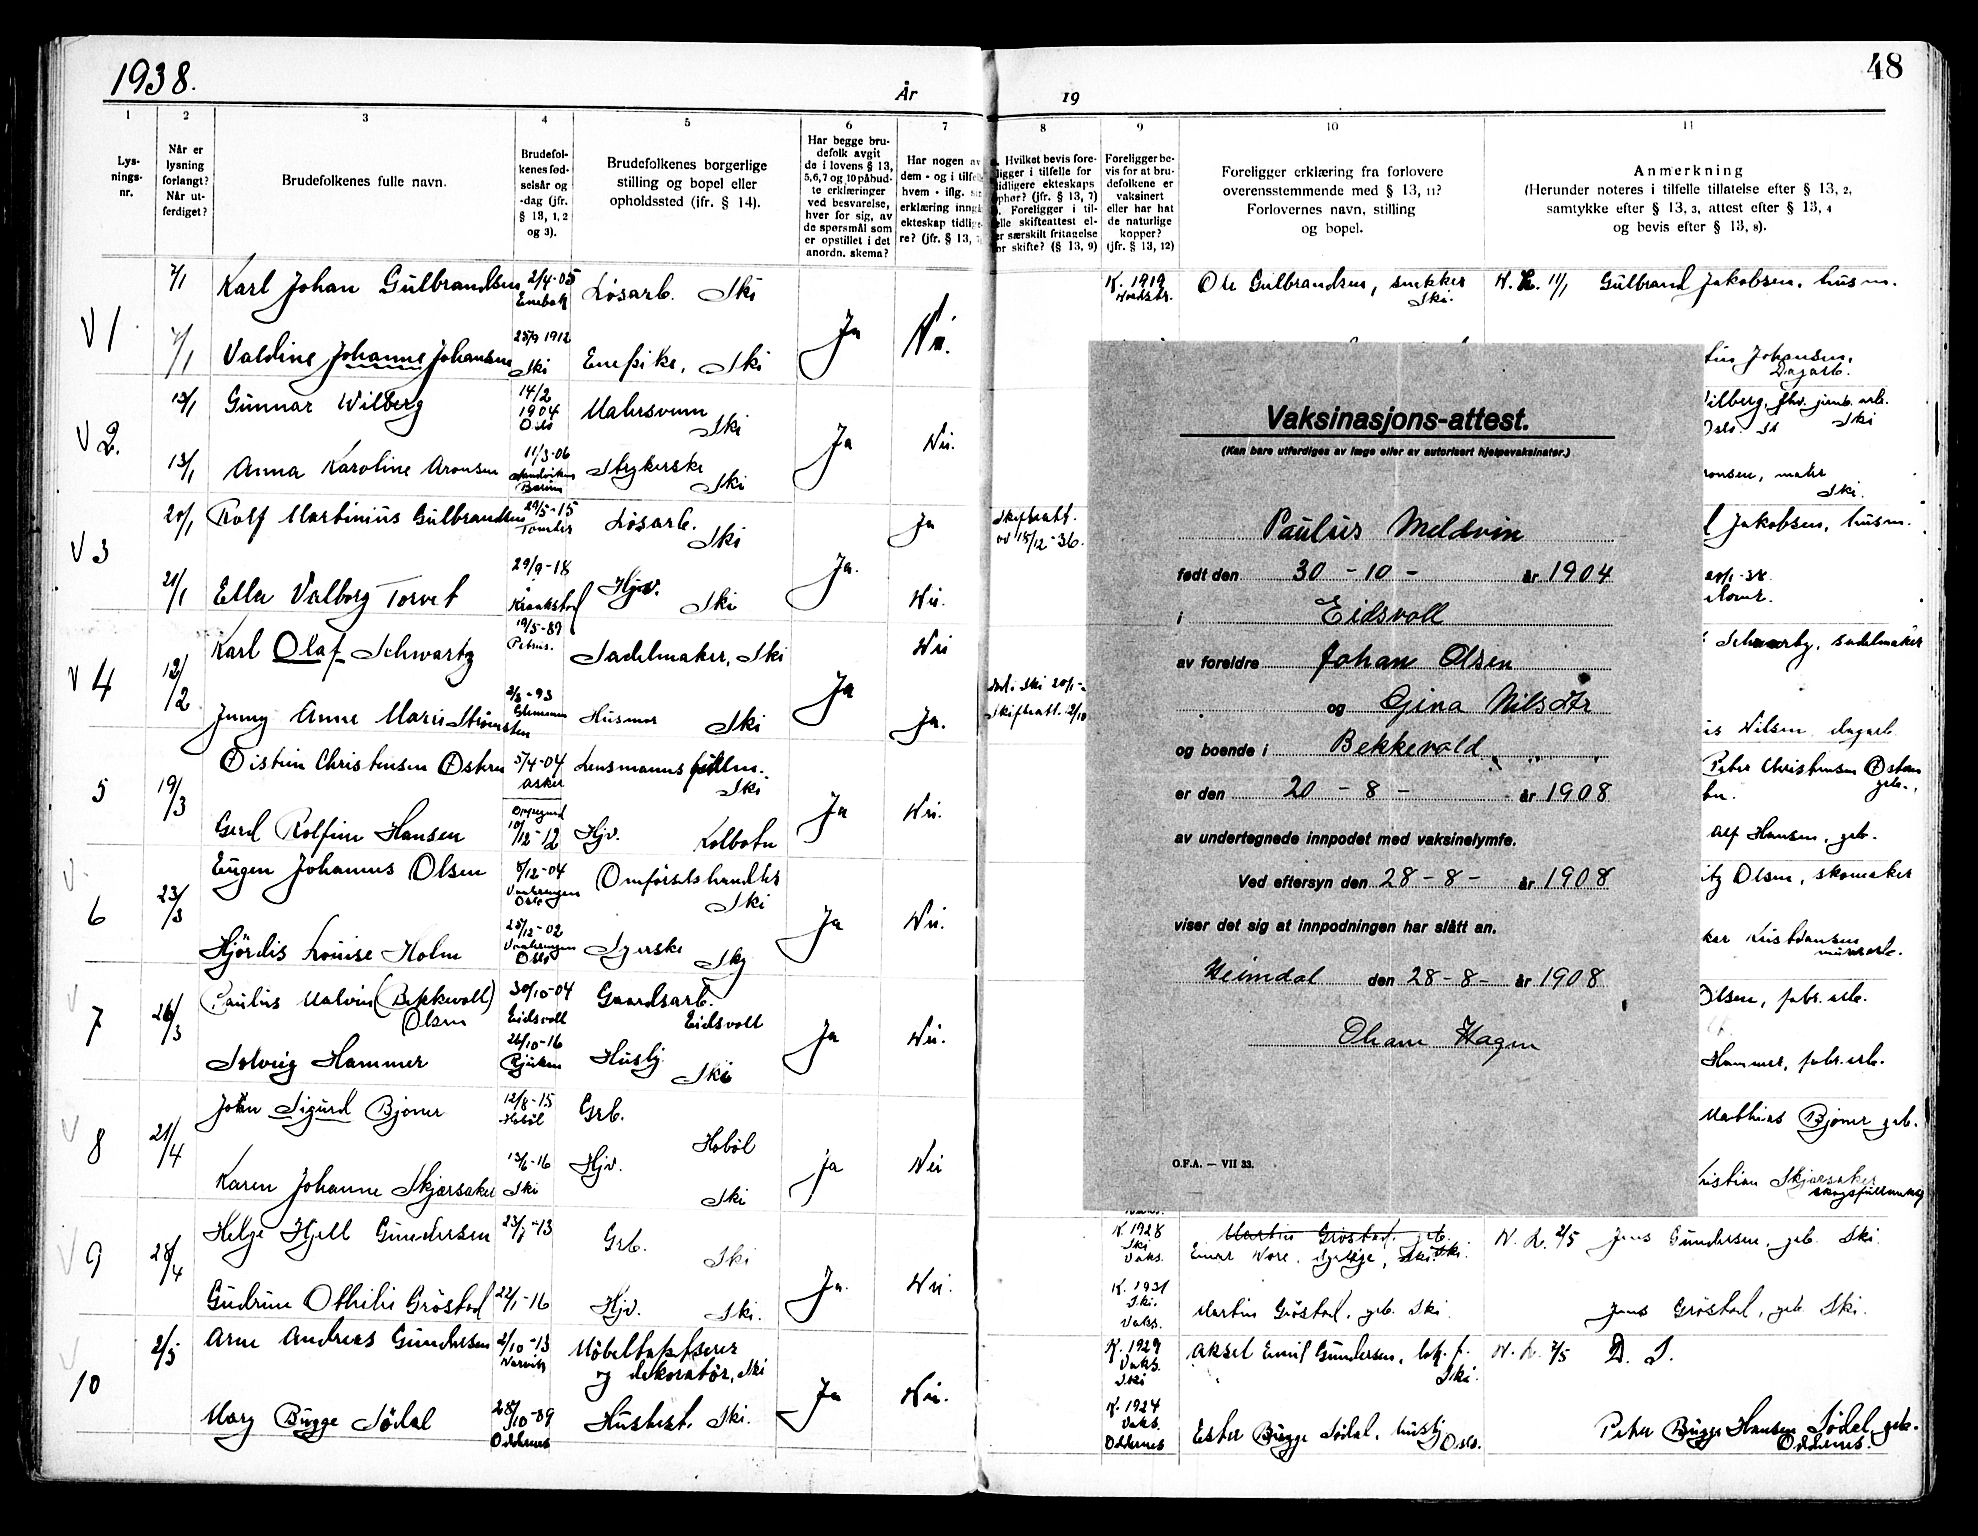 1938.
År
19
48
1
2
3
4
5
6
7
8
9
10
11
Lys-
nings-
nr.
Når er
lysning
forlangt?
Når ut-
ferdiget?
Brudefolkenes fulle navn.
Brudefol-
kenes fød-
selsår og
-dag (jfr.
§ 13, 1, 2
og 3).
Brudefolkenes borgerlige
stilling og bopel eller
opholdssted (jfr. § 14).
Har begge bru-
defolk avgit
de i lovens § 13,
5,6,7 og 10 påbud-
te erklæringer
ved besvarelse,
hver for sig, av
de spørsmål som
er opstillet i det
anordn. skema?
Har nogen av
dem - og i tilfe
hvem - iflg. si
erklæring inng
ekteskap tidlig
re? (jfr. § 13,
Hvilket bevis fore-
ligger i tilfelle for
tidligere ekteskaps
ophør? (jfr. § 13, 7)
Foreligger i til-
elle skifteattest el-
er særskilt fritagelse
or skifte? (§ 13, 9)
Foreligger be-
vis for at bru-
defolkene er
vaksinert
eller har hat
de naturlige
kopper?
(jfr. § 13, 12)
Foreligger erklæring fra forlovere
overensstemmende med § 13, 11?
Forlovernes navn, stilling
og bopel.
Anmerkning
(Herunder noteres i tilfelle tillatelse efter § 13, 2,
samtykke efter § 13, 3, attest efter § 13, 4
og bevis efter § 13, 8).
V 1
7/1 Karl Johan Gulbrandsen 2/4-05 Enebak Løsarb. Ski
K. 1919 Ole Gulbrandsen, snekker Ski. 11/1 Gulbrand Jakobsen, husm.
7/1 Valdine Johanne Johansen 25/9 1912 Ski Ski Ja Nei.
Johansen, Dagarb.
V 2.
13/1 Gunnar Wilberg 14/2 1904 Oslo Malersvenn Ski Ja Nei.
Wilberg, Ski
13/1 Anna Karoline Aronsen 11/3-06 Sandviken Bærum Strykerske Ski
ronsen, maler Ski.
V 3
20/1 Rolf Martinius Gulbrandsen 29/5-15 Løsarb. Ski Ja
Skifteatt. av 15/12-36.
Jakobsen, husm.
21/1 Ella Valborg Torvet 29/9-18 Kraakstad Hjv. Ski Ja. Nei.
V 4
12/2 Karl Olaf Schwartz 19/5-89 Sadelmaker, Ski Ja Nei
Schwartz, sadelmaker
Jenny Anne Marie Husmor Ski Ja.
Skifteatt. 2/10
is Nilsen dagarb.
5
19/3 Øistein Christensen Østern 5/4-04 Asker Lensmannsfullm. Ski Ja Nei.
Peter Christensen Østern grb.
Gerd Rolfine Hansen 10/12-12 Hjv. Kolbotn
Alf Hansen, grb.
V 6
23/3 Eugen Johannes Olsen 8/12-04 Vaalerengen Oslo Omførselshandler Ski Ja Nei.
Olsen, skomaker
Hjördis Louise Holm 25/12-02 Vaalerengen Oslo Syerske Ski
Kristiansen murerarb.
V 7
26/3 Paulius Malvin (Bekkevoll) Olsen 30/10-04 Eidsvoll Gaardsarb. Eidsvoll Ja Nei.
Olsen, fabr. arb.
Solveig Hammer 26/10-16 Rjukan Huslj Ski
Hammer, fabr. arb.
V 8
21/4 John Sigurd Bjöner 12/8-15 Hobøl Grb. Hobøl Ja Nei
Mathias Bjöner grb.
Karen Johanne Skjærsaker 13/6-16 Ski Hjv. Ski
ristian Skjærsaker skogsfullmektig
V 9
28/4 Helge Kjell Gundersen 23/7-13 Grb. Ski Ja. Nei.
K. 1928 Ski Vaks. Martin Gröstad, grb. Einar Ski. N. L. 2/5 Jens Gundersen, grb. Ski.
Gudrun Othilie Gröstad 22/1-16 Hjv. Ski.
K. 1931 Ski. Vaks. Martin Gröstad, grb. Ski. Jens Gröstad, grb. Ski.
V 10
2/5 Arne Andreas Gundersen 2/10-13 Narvik Möbeltapetserer og dekoratør, Ski Ja Nei.
K. 1929 Vaks. Ski Aksel Emil Gundersen, lok. f. Ski. N. L. 7/5 D. S.
Mary Bugge Södal 28/10-09 Oddernes Husbest. Ski.
K. 1924 Vaks. Oddernes Ester Bugge Södal, huslj Oslo. Peter Bugge Hansen Södal, grb. Oddernes.
Vaksinasjons-attest.
(Kan bare utferdiges av læge eller av autorisert hjelpevaksinatør.)
Paulius Meldvin
født den 30 - 10 - år 1904
i Eidsvoll
av foreldre Johan Olsen
og Gina Nilsdtr
og boende i Bekkevold
er den 20 - 8 - år 1908
av undertegnede innpodet med vaksinelymfe.
Ved eftersyn den 28 - 8 - år 1908
viser det sig at innpodningen har slått an.
Heimdal den 28 - 8 - år 1908
Hagen
O.F.A. — VII 33.